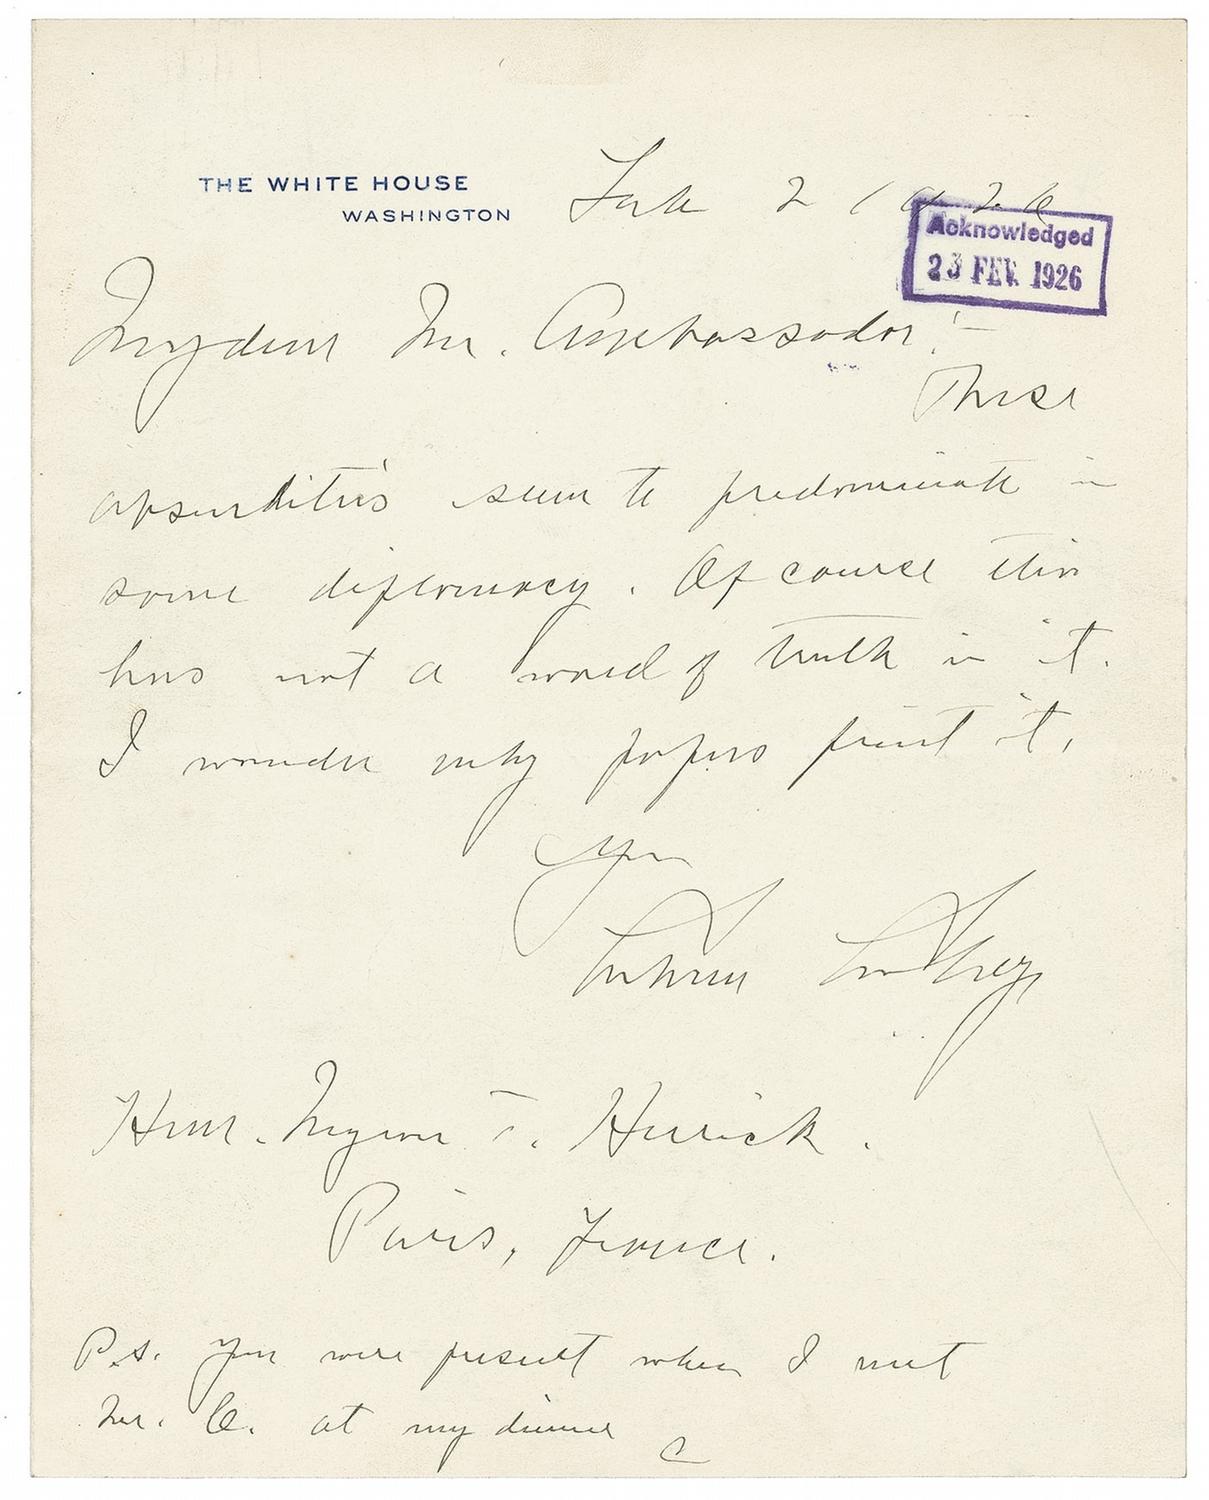 THE WHITE HOUSE
WASHINGTON
Feb 2 1926
Acknowledged
23 FEV. 1926
My dear Mr. Ambassador:-
These
absurdities seem to predominate in
some diplomacy. Of course this
has not a word of truth in it.
I wonder why papers print it.
Yours
Calvin Coolidge
Hon. Myron T. Herrick.
Paris, France.
P.s. You were present when I met
Mr. C. at my dinner
C